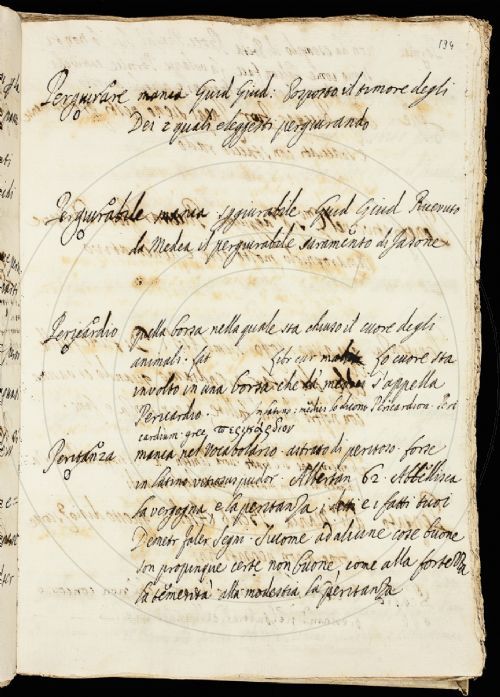 194
Pergiurare manca Guid Giud: Posposto il timore degli
Dei e quali elegesti pergiurando
Pergiurabile manca spgiurabile Guid Giud Ricevuto
da Medea il pergiurabile iuramento di Jasone
Pericardio quella borsa nella quale sta chiuso il cuore degli
animali. lat libr cur manca lo cuore sta
involto in una borsa che s'appella
Pericardio. in latino: medici lo dicono Pericardion. Peri
cardium grec περικαρδιον
Peritanza manca nel Vocabolario astratto di peritoso. forse
in latino pudor. Albertan 62. Abbellisca
la vergogna e la peritanza, e i fatti tuoi
Demetr Faler Segni. Siccome ad alcune cose buone
son propinque certe non buone, come alla fortezza
la temerità alla modestia la peritanza